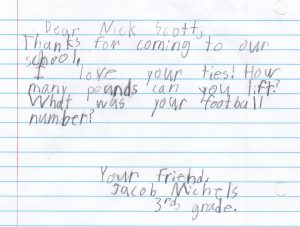 Dear Nick Scott,
Thanks for coming to our
school.
I love your ties! How
many pounds can you lift?
What was your football
number?
Your friend,
Jacob Michels
3rd, grade.